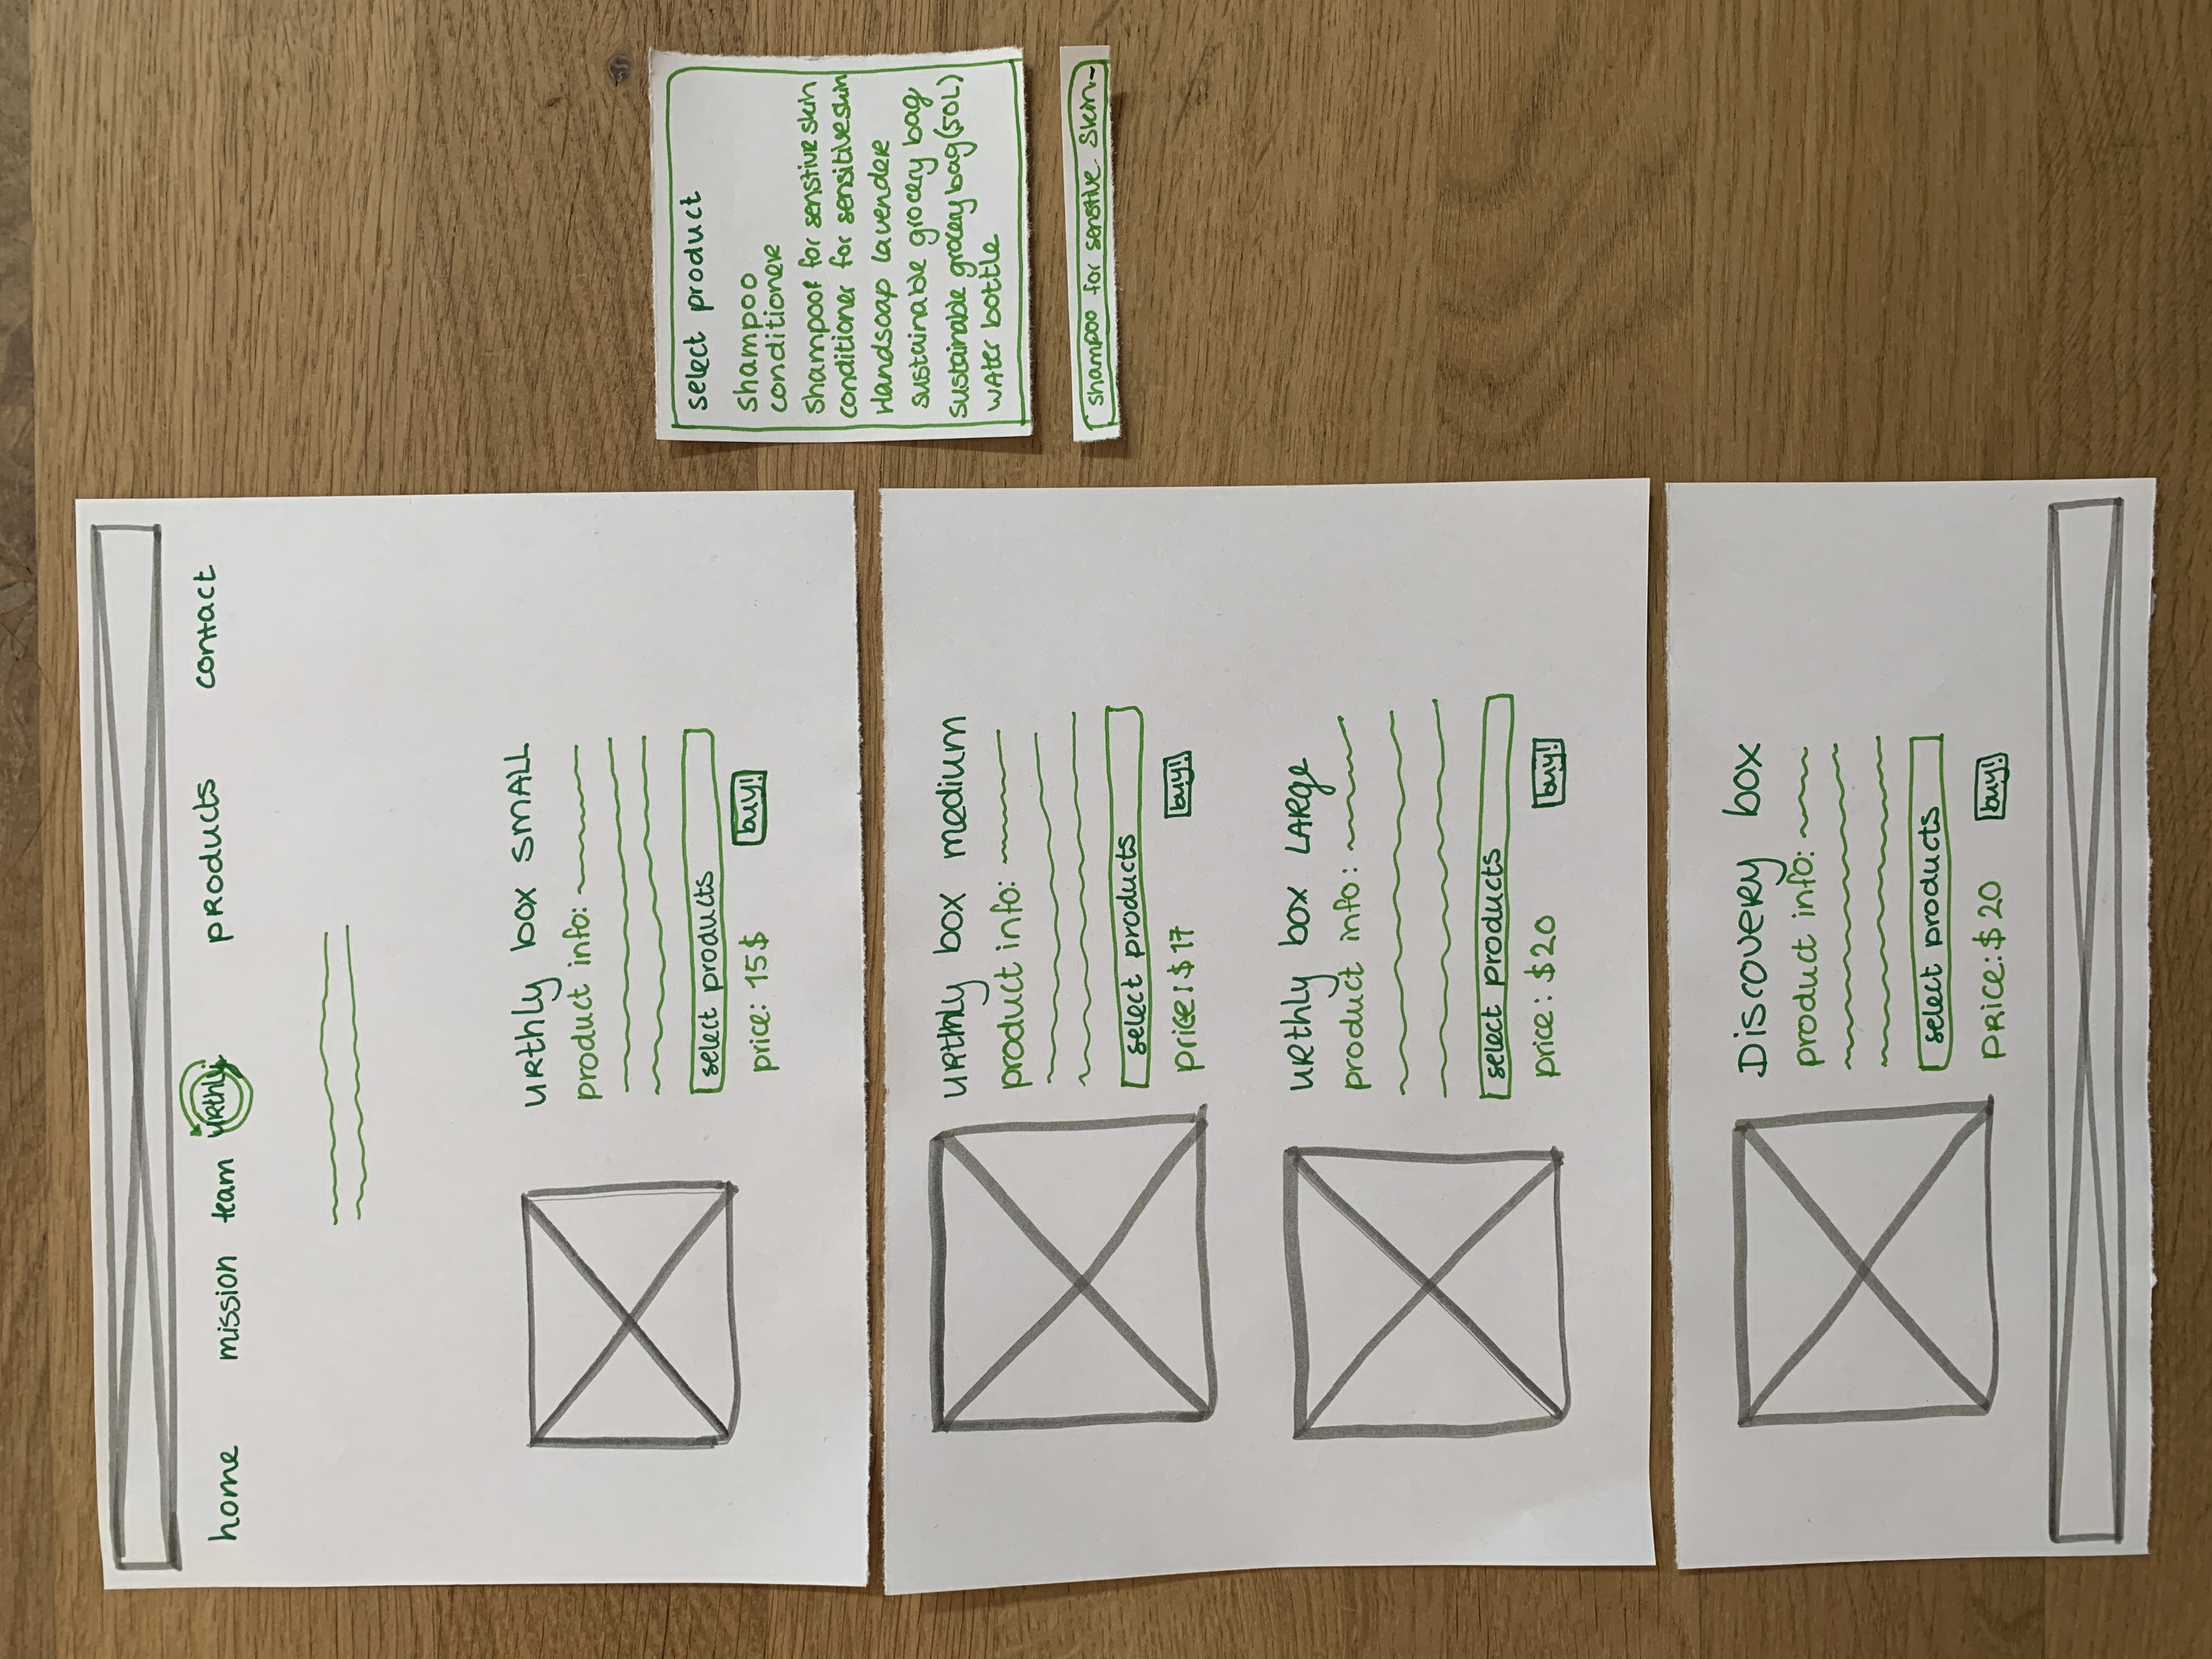 home mission team urthly products contact
urthly box small
product info:
select products
price: 15$ buy!
urthly box medium
product info:
select products
price: $17 buy!
urthly box Large
product info:
select products
price: $20 buy!
Discovery box
product info:
select products
Price: $20 buy!
select product
shampoo
conditioner
shampoor for senstive skin
conditioner for sensitive skin
Handsoap lavender
sustainable grocery bag
sustainable grocery bag (50L)
water bottle
shampoo for senstive skin